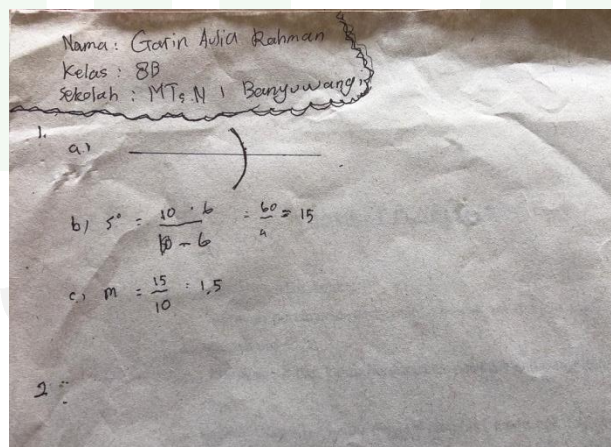 Nama : Garin Aulia Rahman
Kelas : 8B
Sekolah : MTs.N 1 Banyuwangi
1.
a.)
b) s° = 10 . 6 / 10 - 6 = 60 / 4 = 15
c, m = 15 / 10 = 1,5
2 :